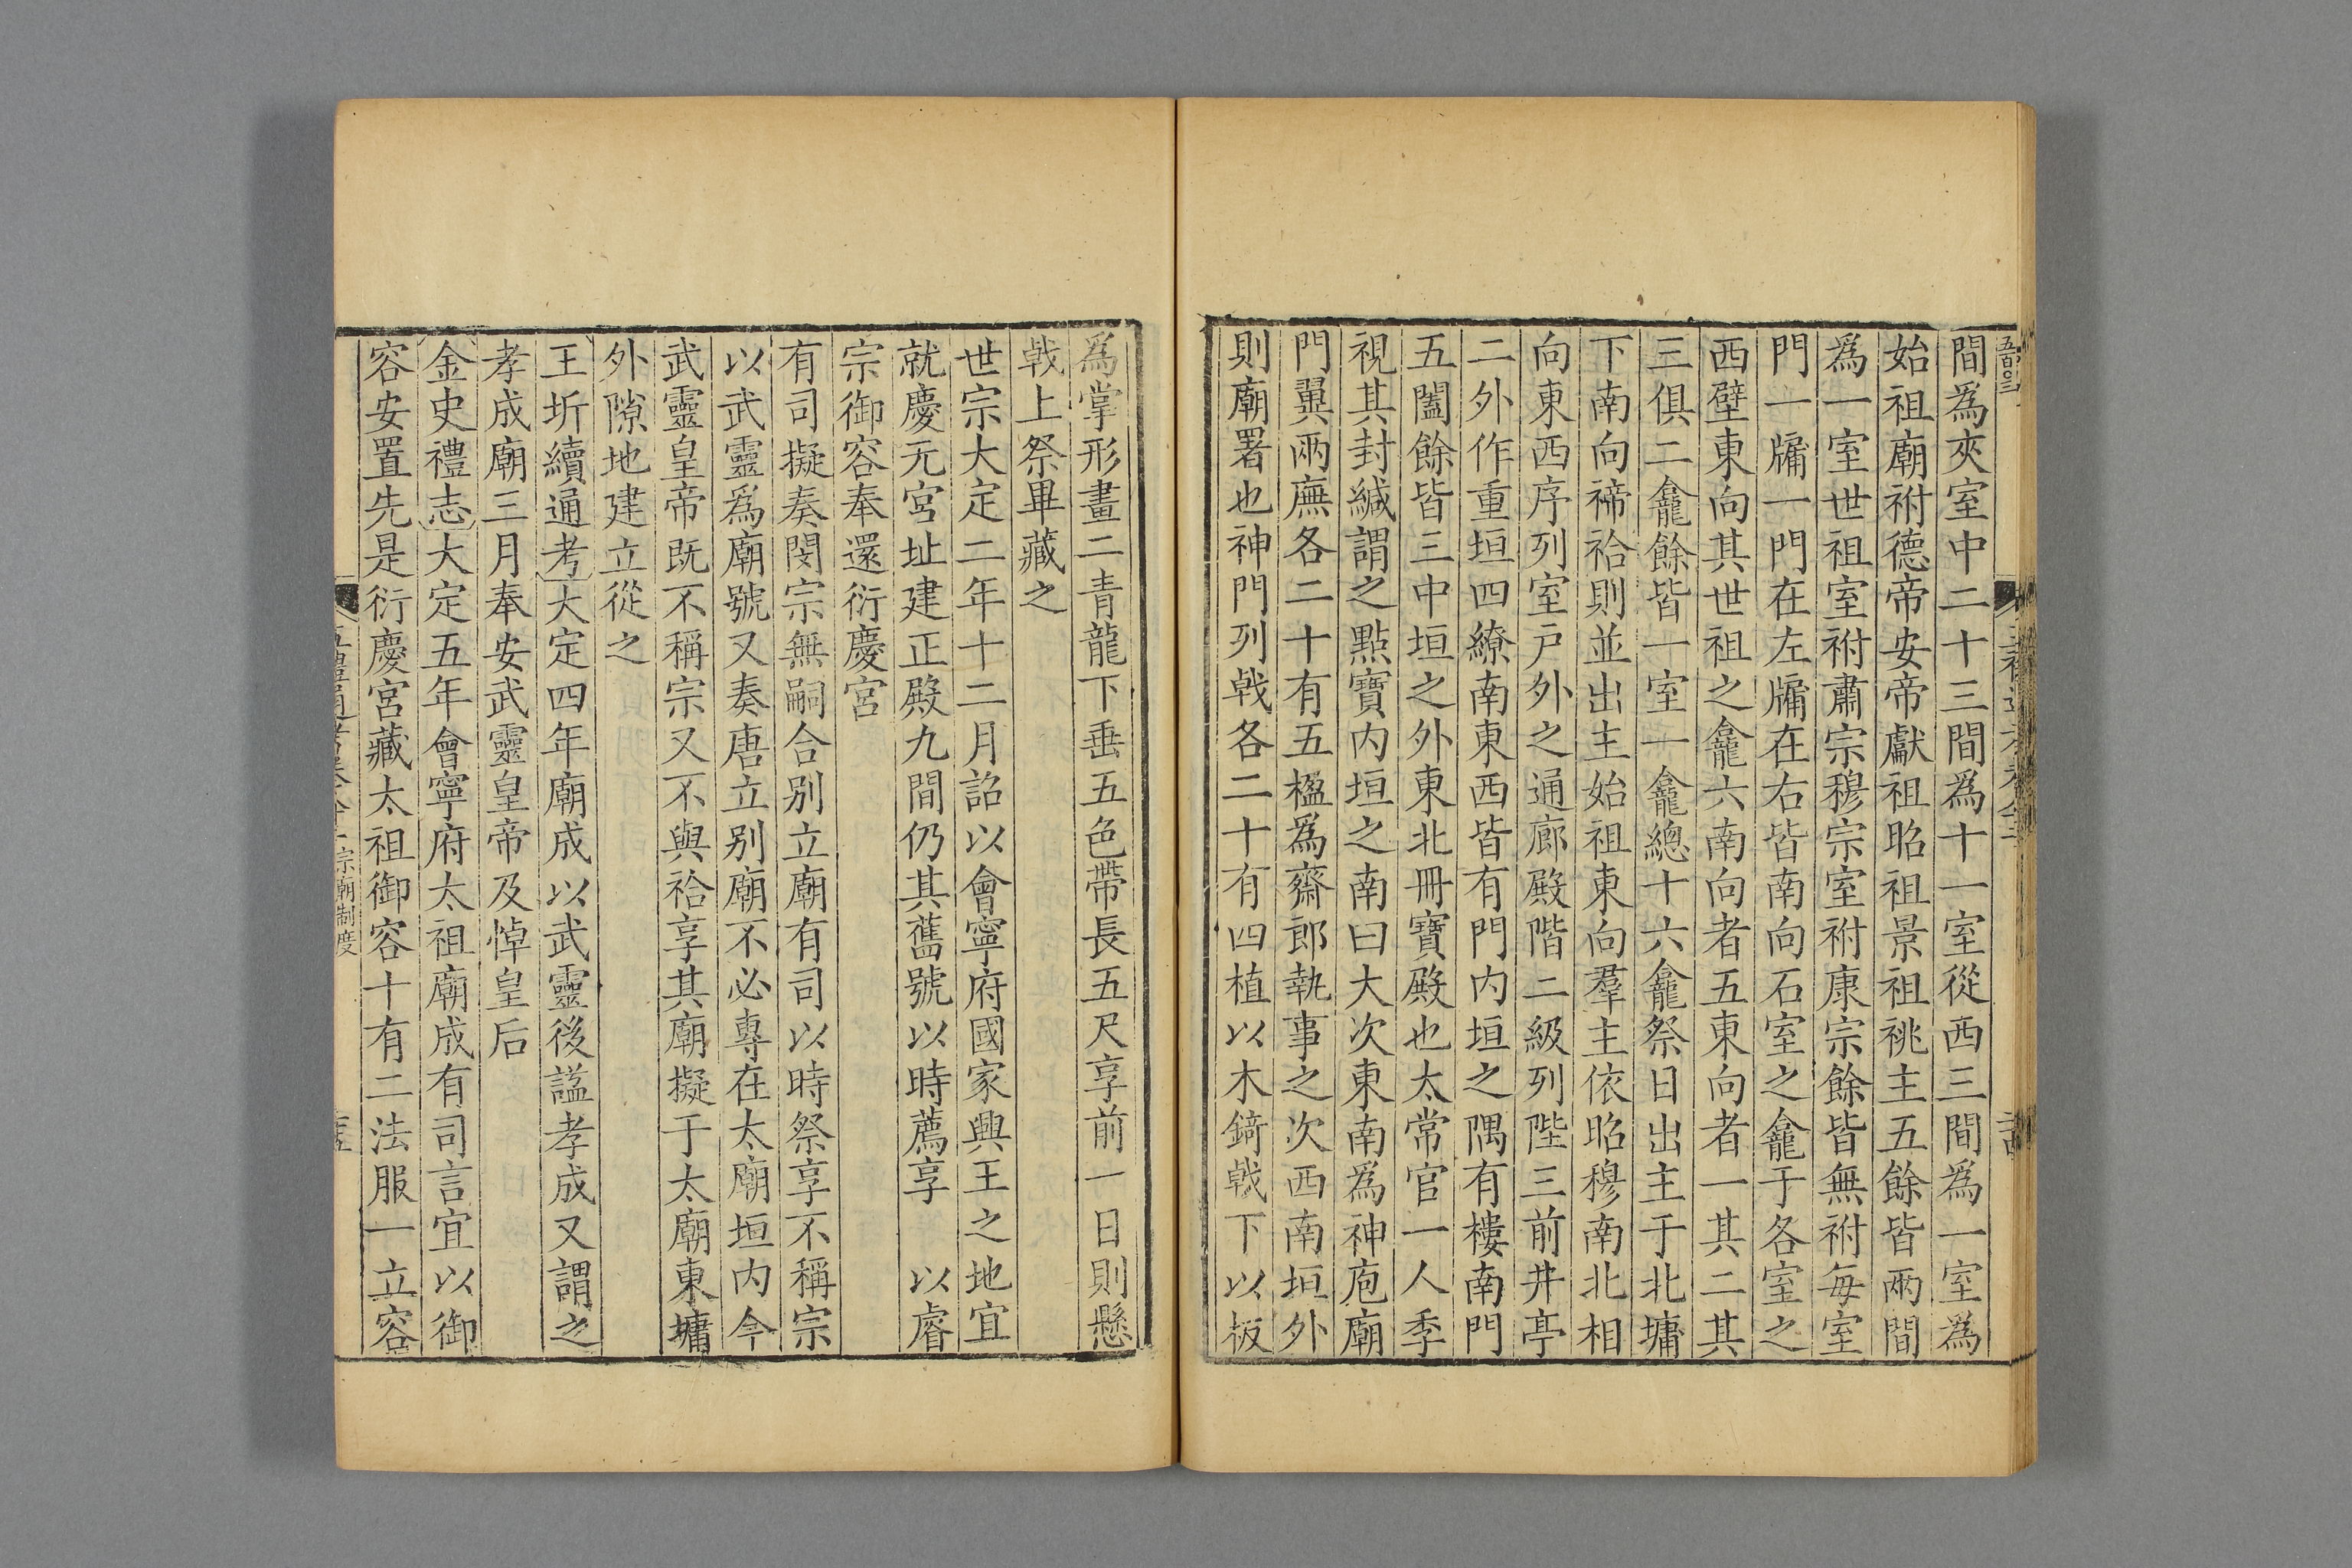 間爲夾室中二十三間爲十一室從西三間爲一室爲
始祖廟祔德帝安帝獻祖昭祖景祖祧主五餘皆兩間
爲一室世祖室祔肅宗穆宗室祔康宗餘皆無祔每室
門一牖一門在左牖在右皆南向石室之龕于各室之
西壁東向其世祖之龕六南向者五東向者一其二其
三俱二龕餘皆一室一龕總十六龕祭日出主于北墉
下南向禘祫則並出主始祖東向羣主依昭穆南北相
向東西序列室戶外之通廊殿階二級列陛三前井亭
二外作重垣四繚南東西皆有門內垣之隅有樓南門
五闔餘皆三中垣之外東北冊寶殿也太常官一人季
視其封緘謂之點寶內垣之南曰大次東南爲神庖廟
門翼兩廡各二十有五楹爲齋郎執事之次西南垣外
則廟署也神門列戟各二十有四植以木錡戟下以板
爲掌形畫二青龍下垂五色帶長五尺享前一日則懸
戟上祭畢藏之
世宗大定二年十二月詔以會寧府國家興王之地宜
就慶元宮址建正殿九間仍其舊號以時薦享 以睿
宗御容奉還衍慶宮
有司擬奏閔宗無嗣合別立廟有司以時祭享不稱宗
以武靈爲廟號又奏唐立別廟不必專在太廟垣內今
武靈皇帝旣不稱宗又不與祫享其廟擬于太廟東墉
外隙地建立從之
王圻續通考大定四年廟成以武靈後謚孝成又謂之
孝成廟三月奉安武靈皇帝及悼皇后
金史禮志大定五年會寧府太祖廟成有司言宜以御
容安置先是衍慶宮藏太祖御容十有二法服一立容
宗廟制度